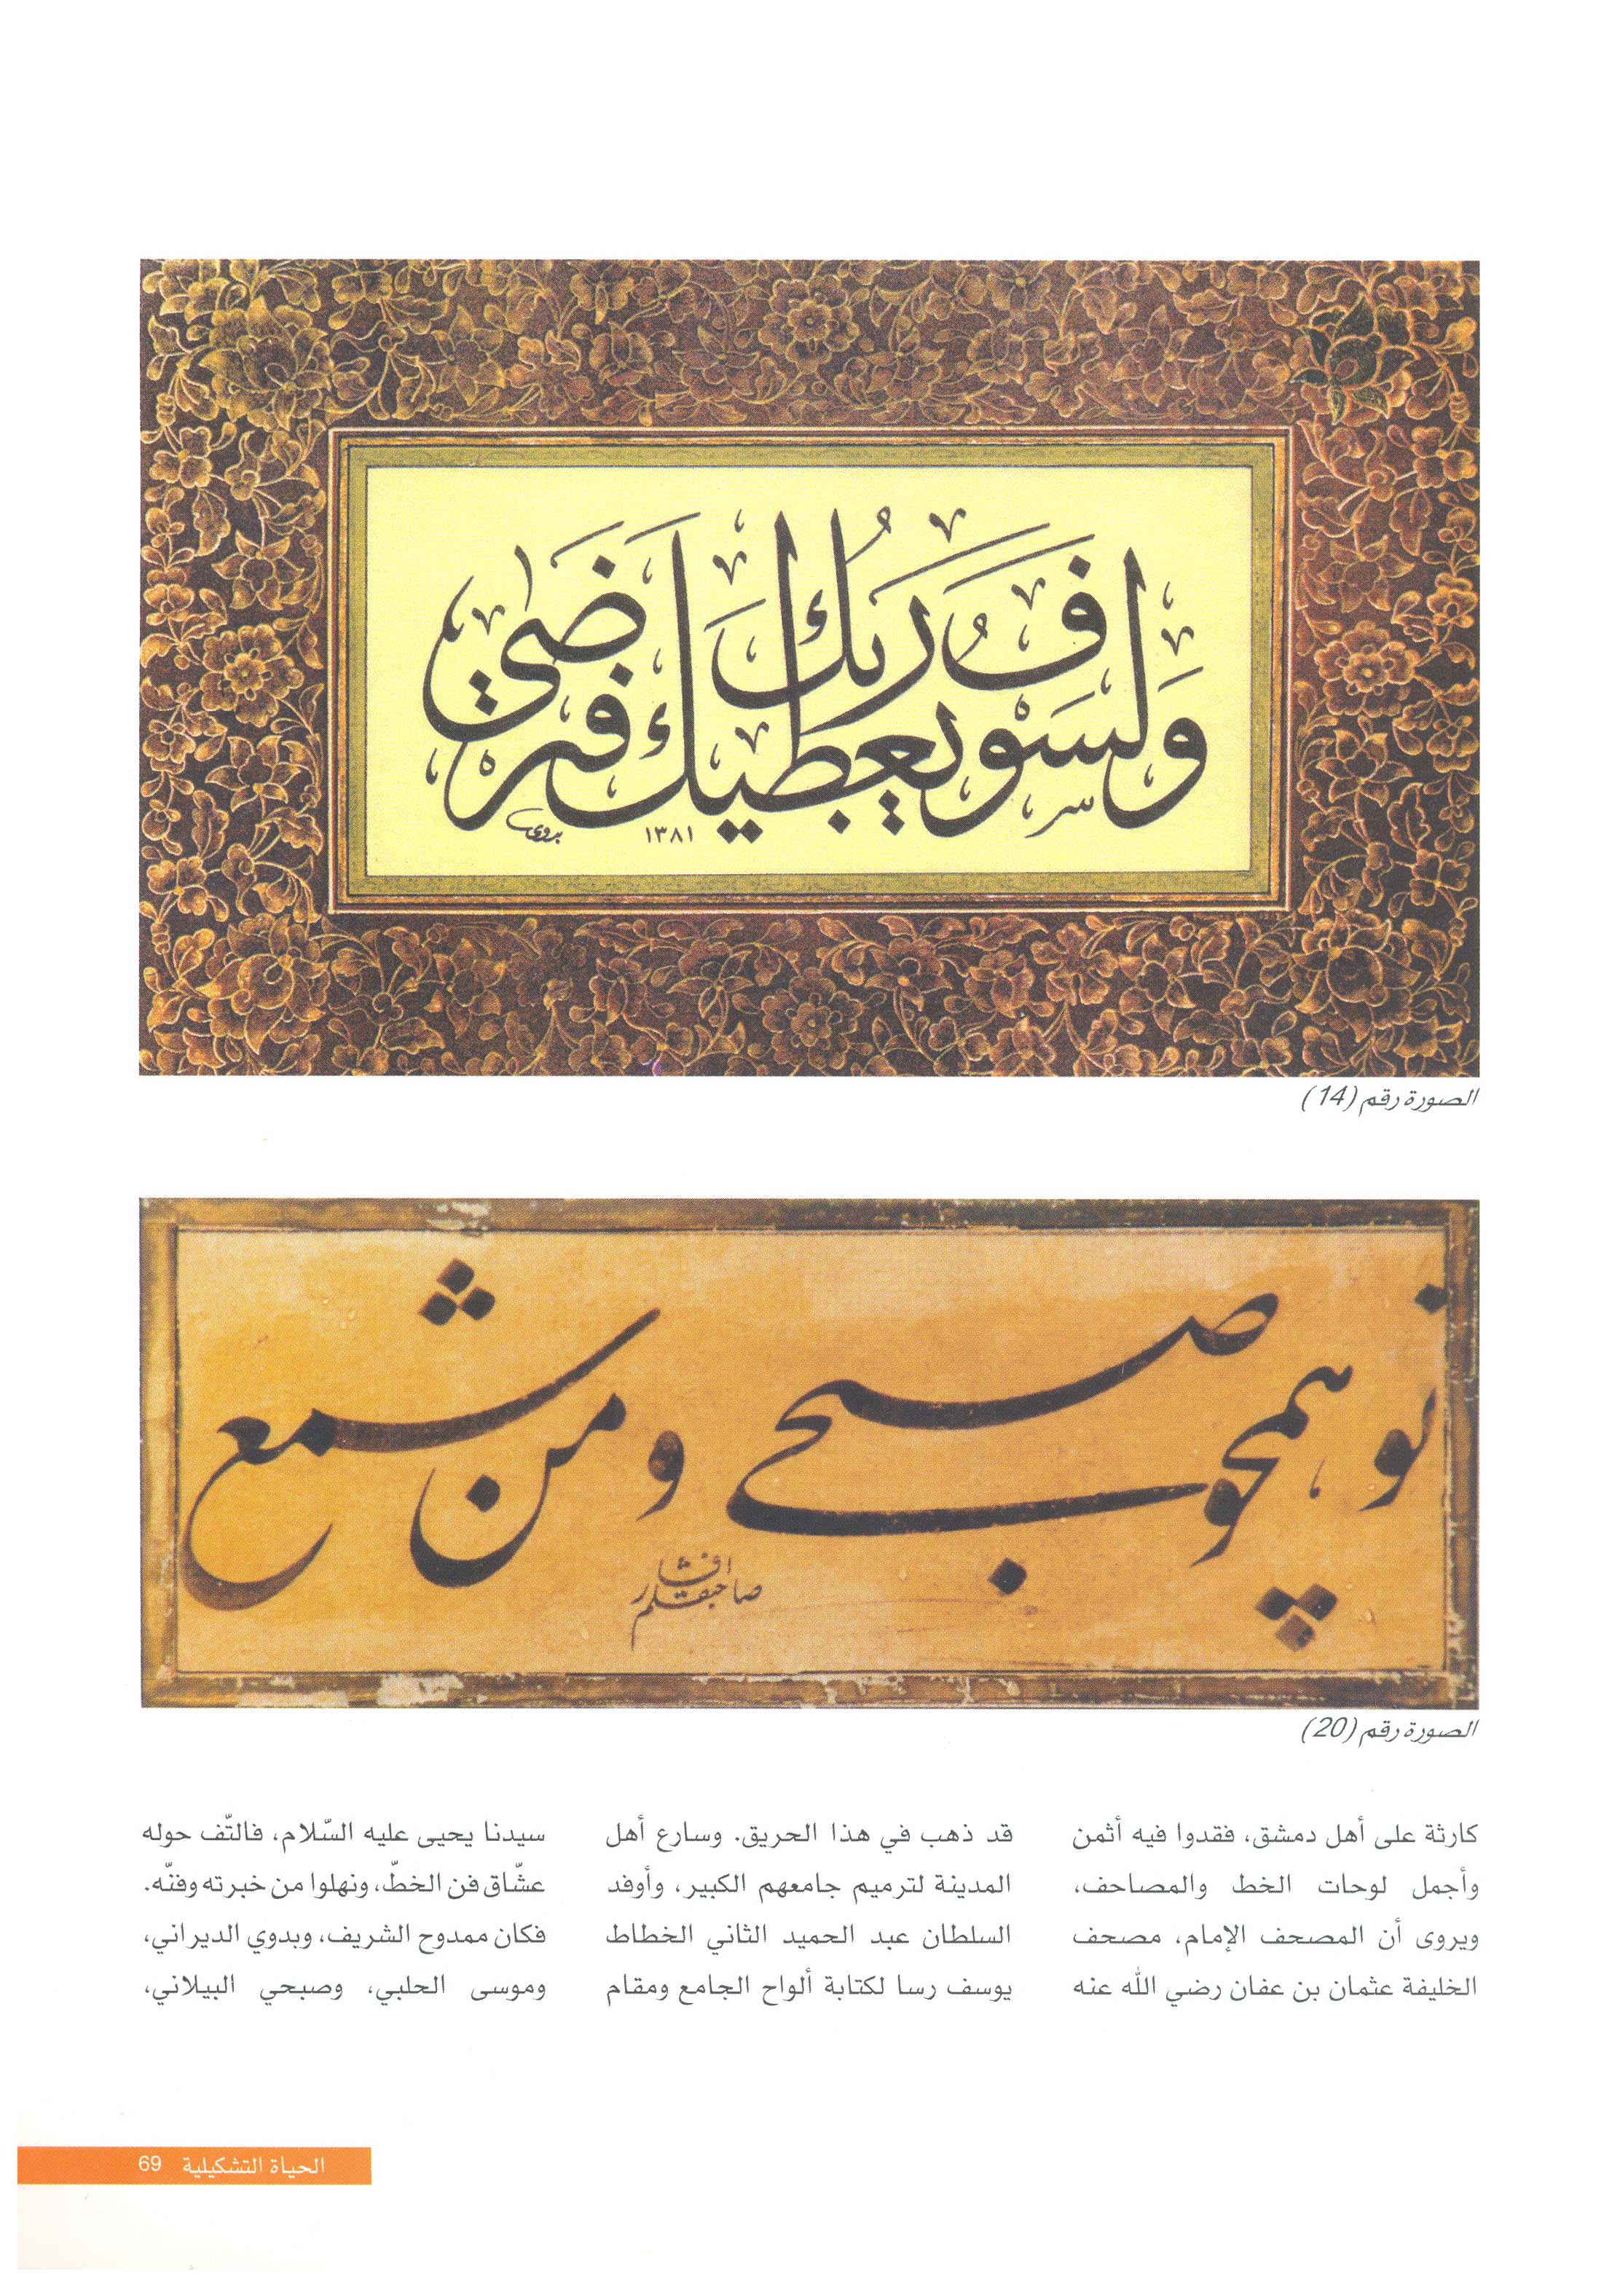 ولسوف يعطيك ربك فترضى
١٣٨١
بدوي
الصورة رقم (14)
تو همچو صبحی و من شمع
صاحبقلم افشار
الصورة رقم (20)
كارثة على أهل دمشق، فقدوا فيه أثمن
وأجمل لوحات الخط والمصاحف،
ويروى أن المصحف الإمام، مصحف
الخليفة عثمان بن عفان رضي الله عنه
قد ذهب في هذا الحريق. وسارع أهل
المدينة لترميم جامعهم الكبير، وأوفد
السلطان عبد الحميد الثاني الخطاط
يوسف رسا لكتابة ألواح الجامع ومقام
سيدنا يحيى عليه السّلام، فالتّف حوله
عشّاق فن الخطّ، ونهلوا من خبرته وفنّه.
فكان ممدوح الشريف، وبدوي الديراني،
وموسى الحلبي، وصبحي البيلاني،
الحياة التشكيلية 69